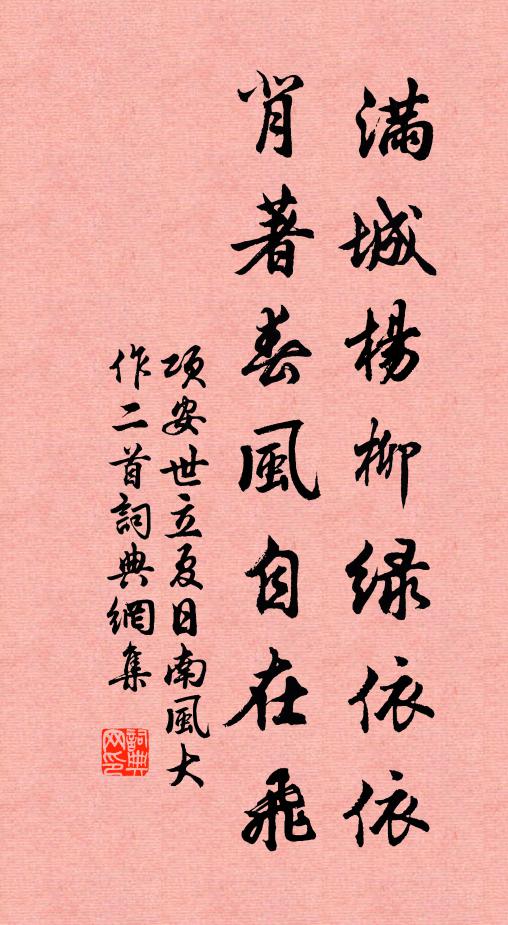 滿城楊柳綠依依
背著春風自在飛
項安世立夏日南風大
作二首詞典網集
詞典网印